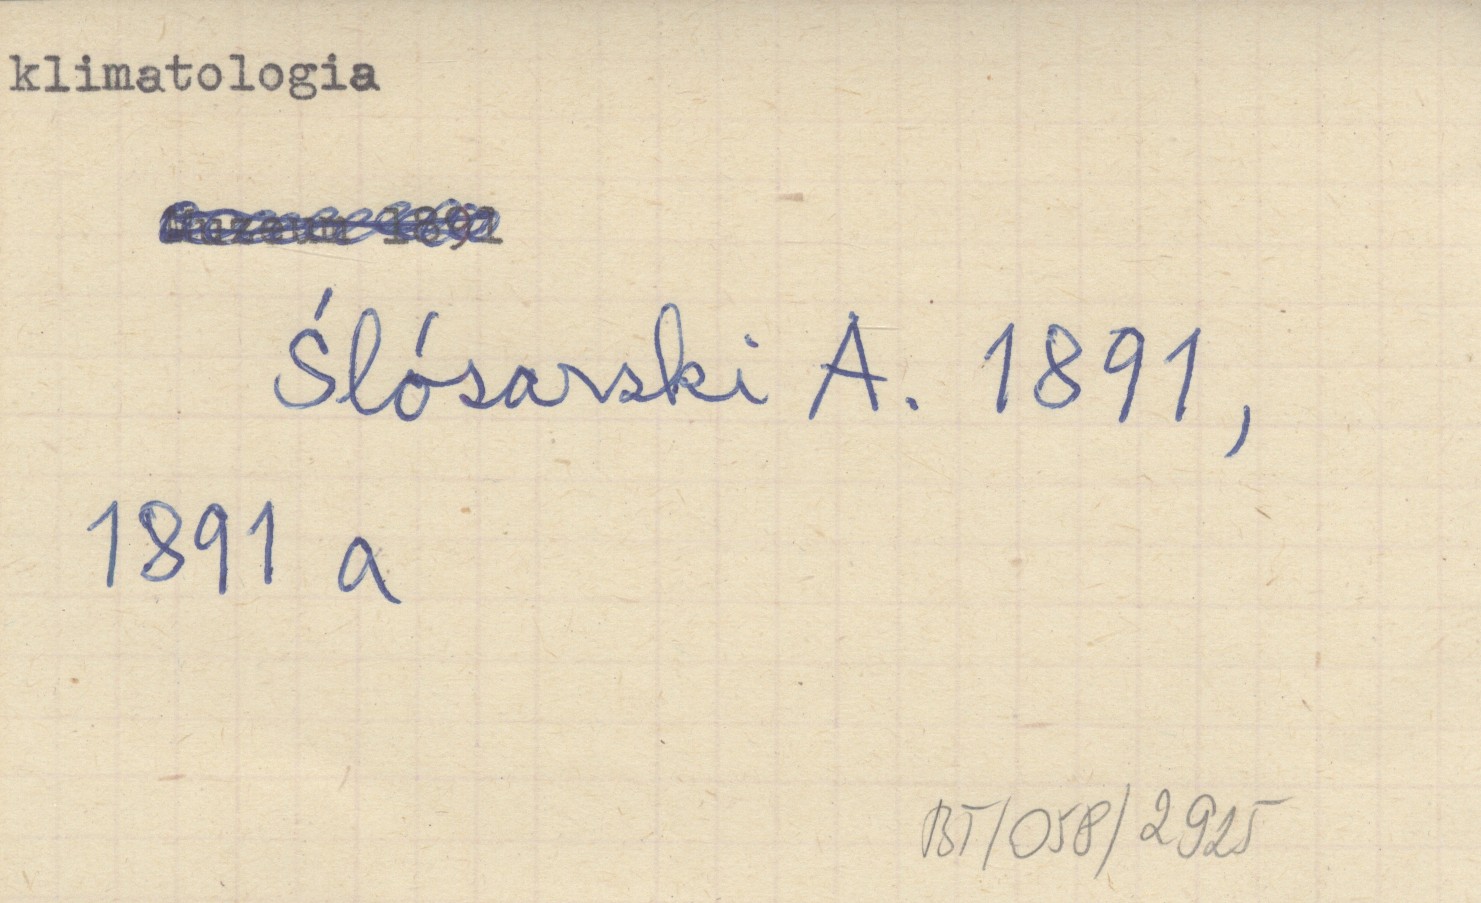 klimatologia
Muzeum 1891
Ślósarski A. 1891,
1891 a
BT/058/2925